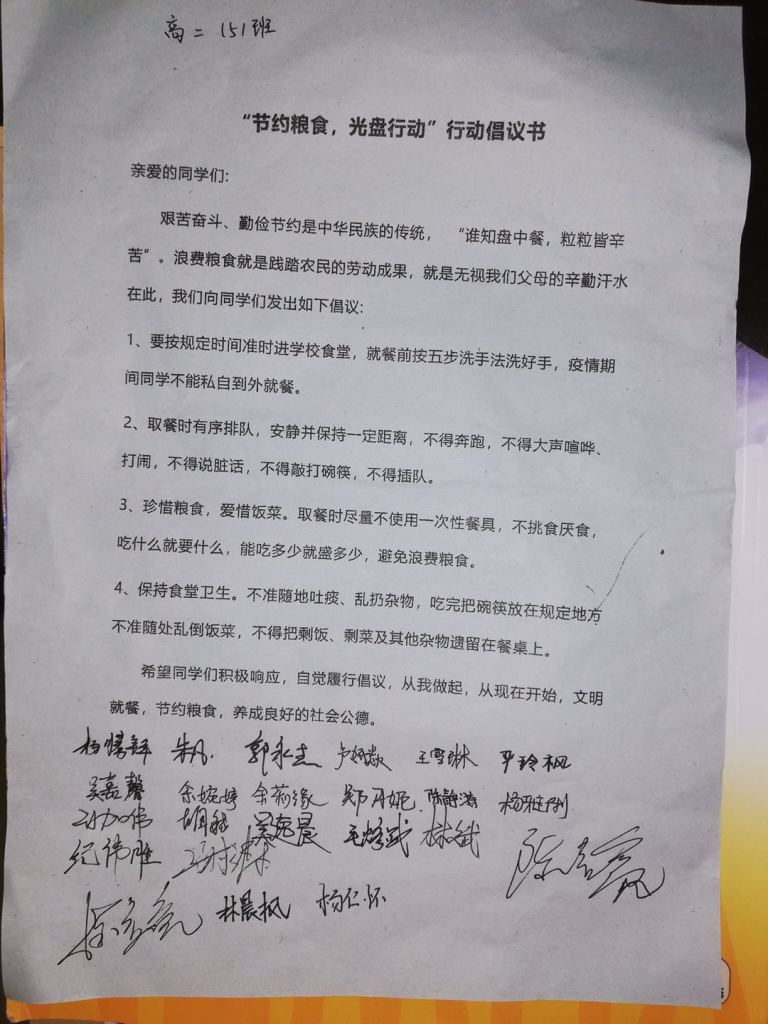 高二 151班
“节约粮食，光盘行动”行动倡议书
亲爱的同学们：
艰苦奋斗、勤俭节约是中华民族的传统， “谁知盘中餐，粒粒皆辛
苦”。浪费粮食就是践踏农民的劳动成果，就是无视我们父母的辛勤汗水
在此，我们向同学们发出如下倡议：
1、要按规定时间准时进学校食堂，就餐前按五步洗手法洗好手，疫情期
间同学不能私自到外就餐。
2、取餐时有序排队，安静并保持一定距离，不得奔跑，不得大声喧哗、
打闹，不得说脏话，不得敲打碗筷，不得插队。
3、珍惜粮食，爱惜饭菜。取餐时尽量不使用一次性餐具，不挑食厌食，
吃什么就要什么，能吃多少就盛多少，避免浪费粮食。
4、保持食堂卫生。不准随地吐痰、乱扔杂物，吃完把碗筷放在规定地方
不准随处乱倒饭菜，不得把剩饭、剩菜及其他杂物遗留在餐桌上。
希望同学们积极响应，自觉履行倡议，从我做起，从现在开始，文明
就餐，节约粮食，养成良好的社会公德。
朱凡 郭永杰 王雪琳
吴嘉馨 余婉婷 郑丹妮 陈静涛
吴冠晨 林斌
纪伟雄
林晨枫 杨仁怀